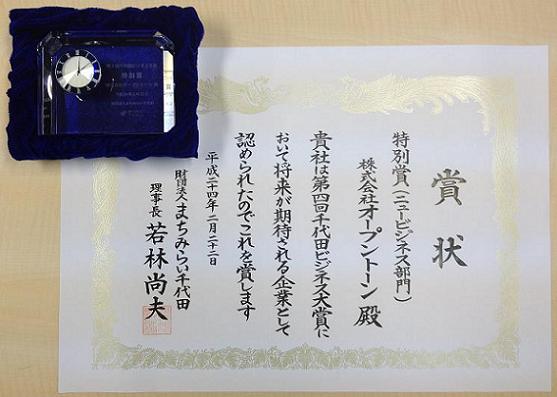 賞状
特別賞(ニュービジネス部門)
株式会社オープントーン殿
貴社は第四回千代田ビジネス大賞に
おいて将来が期待される企業として
認められたのでこれを賞します
平成二十四年二月二十二日
財団法人まちみらい千代田
理事長 若林尚夫
特別賞